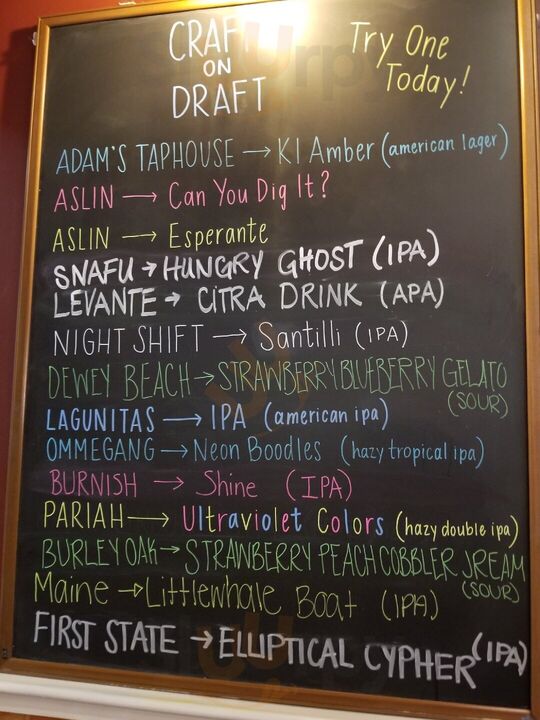 CRAFT
ON
DRAFT
Try One
Today!
ADAM'S TAPHOUSE → KI Amber (american lager)
ASLIN → Can You Dig It?
ASLIN → Esperante
SNAFU → HUNGRY GHOST (IPA)
LEVANTE → CITRA DRINK (APA)
NIGHT SHIFT → Santilli (IPA)
DEWEY BEACH → STRAWBERRY BLUEBERRY GELATO
(SOUR)
LAGUNITAS → IPA (american ipa)
OMMEGANG → Neon Boodles (hazy tropical ipa)
BURNISH → Shine (IPA)
PARIAH → Ultraviolet Colors (hazy double ipa)
BURLEY OAK → STRAWBERRY PEACH COBBLER JREAM
(SOUR)
Maine → Littlewhale Boat (IPA)
FIRST STATE → ELLIPTICAL CYPHER (IPA)